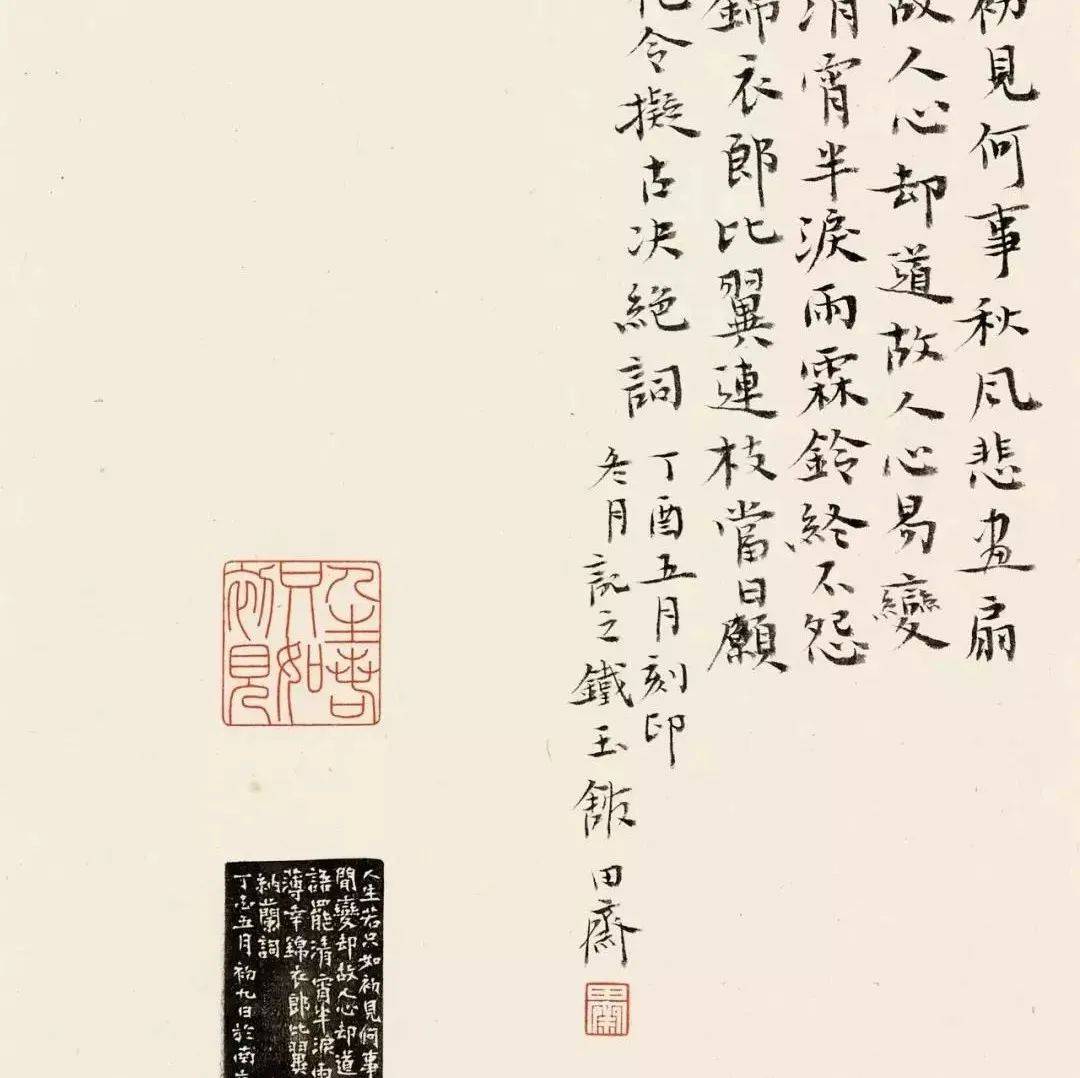 初見何事秋风悲畫扇
故人心却道故人心易變
清宵半淚雨霖鈴終不怨
錦衣郎比翼連枝當日願
花令擬古決絕詞
丁酉五月刻印
冬月記之鐵玉館田齋
人生若
只如
初見
人生若只如初見何事
閒變却故人心却道
語罷清宵半淚雨
薄幸錦衣郎比翼
納蘭詞
丁酉五月初九日於南